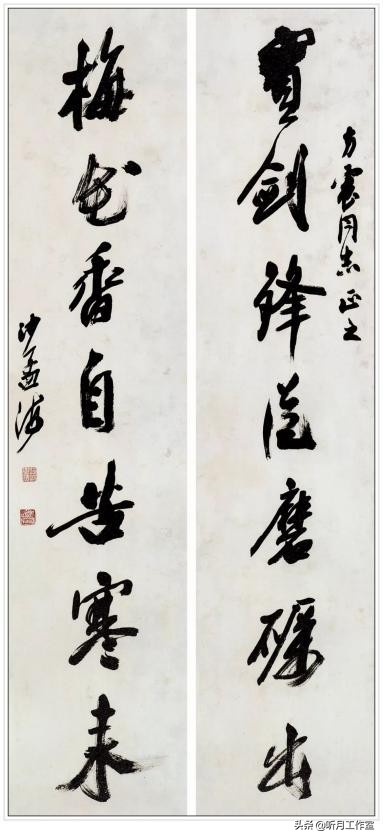 寶劍鋒從磨礪出
方震同志正之
梅花香自苦寒來
沙孟海
头条 @听月工作室